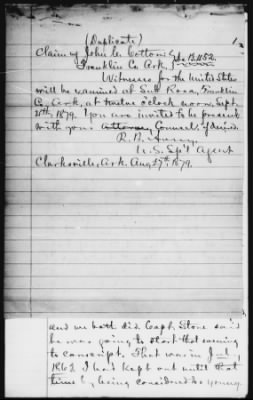 (Duplicate)
Claim of John C. Cotton
Franklin Co. Ark. } No 13,852.
Witnesses for the United States
will be examined at Sub Rosa, Franklin
Co, Ark, at twelve o'clock noon, Sept.
You are invited to be present
with your attorney Counsel if desired.
R. B.
U. S. Sp'l Agent
Clarksville, Ark. Aug 27th 1879.
and we both did. Capt. Stone said
he was going to start that evening
to conscript. That was in July,
1862 I had kept out until that
time by being considered too young.